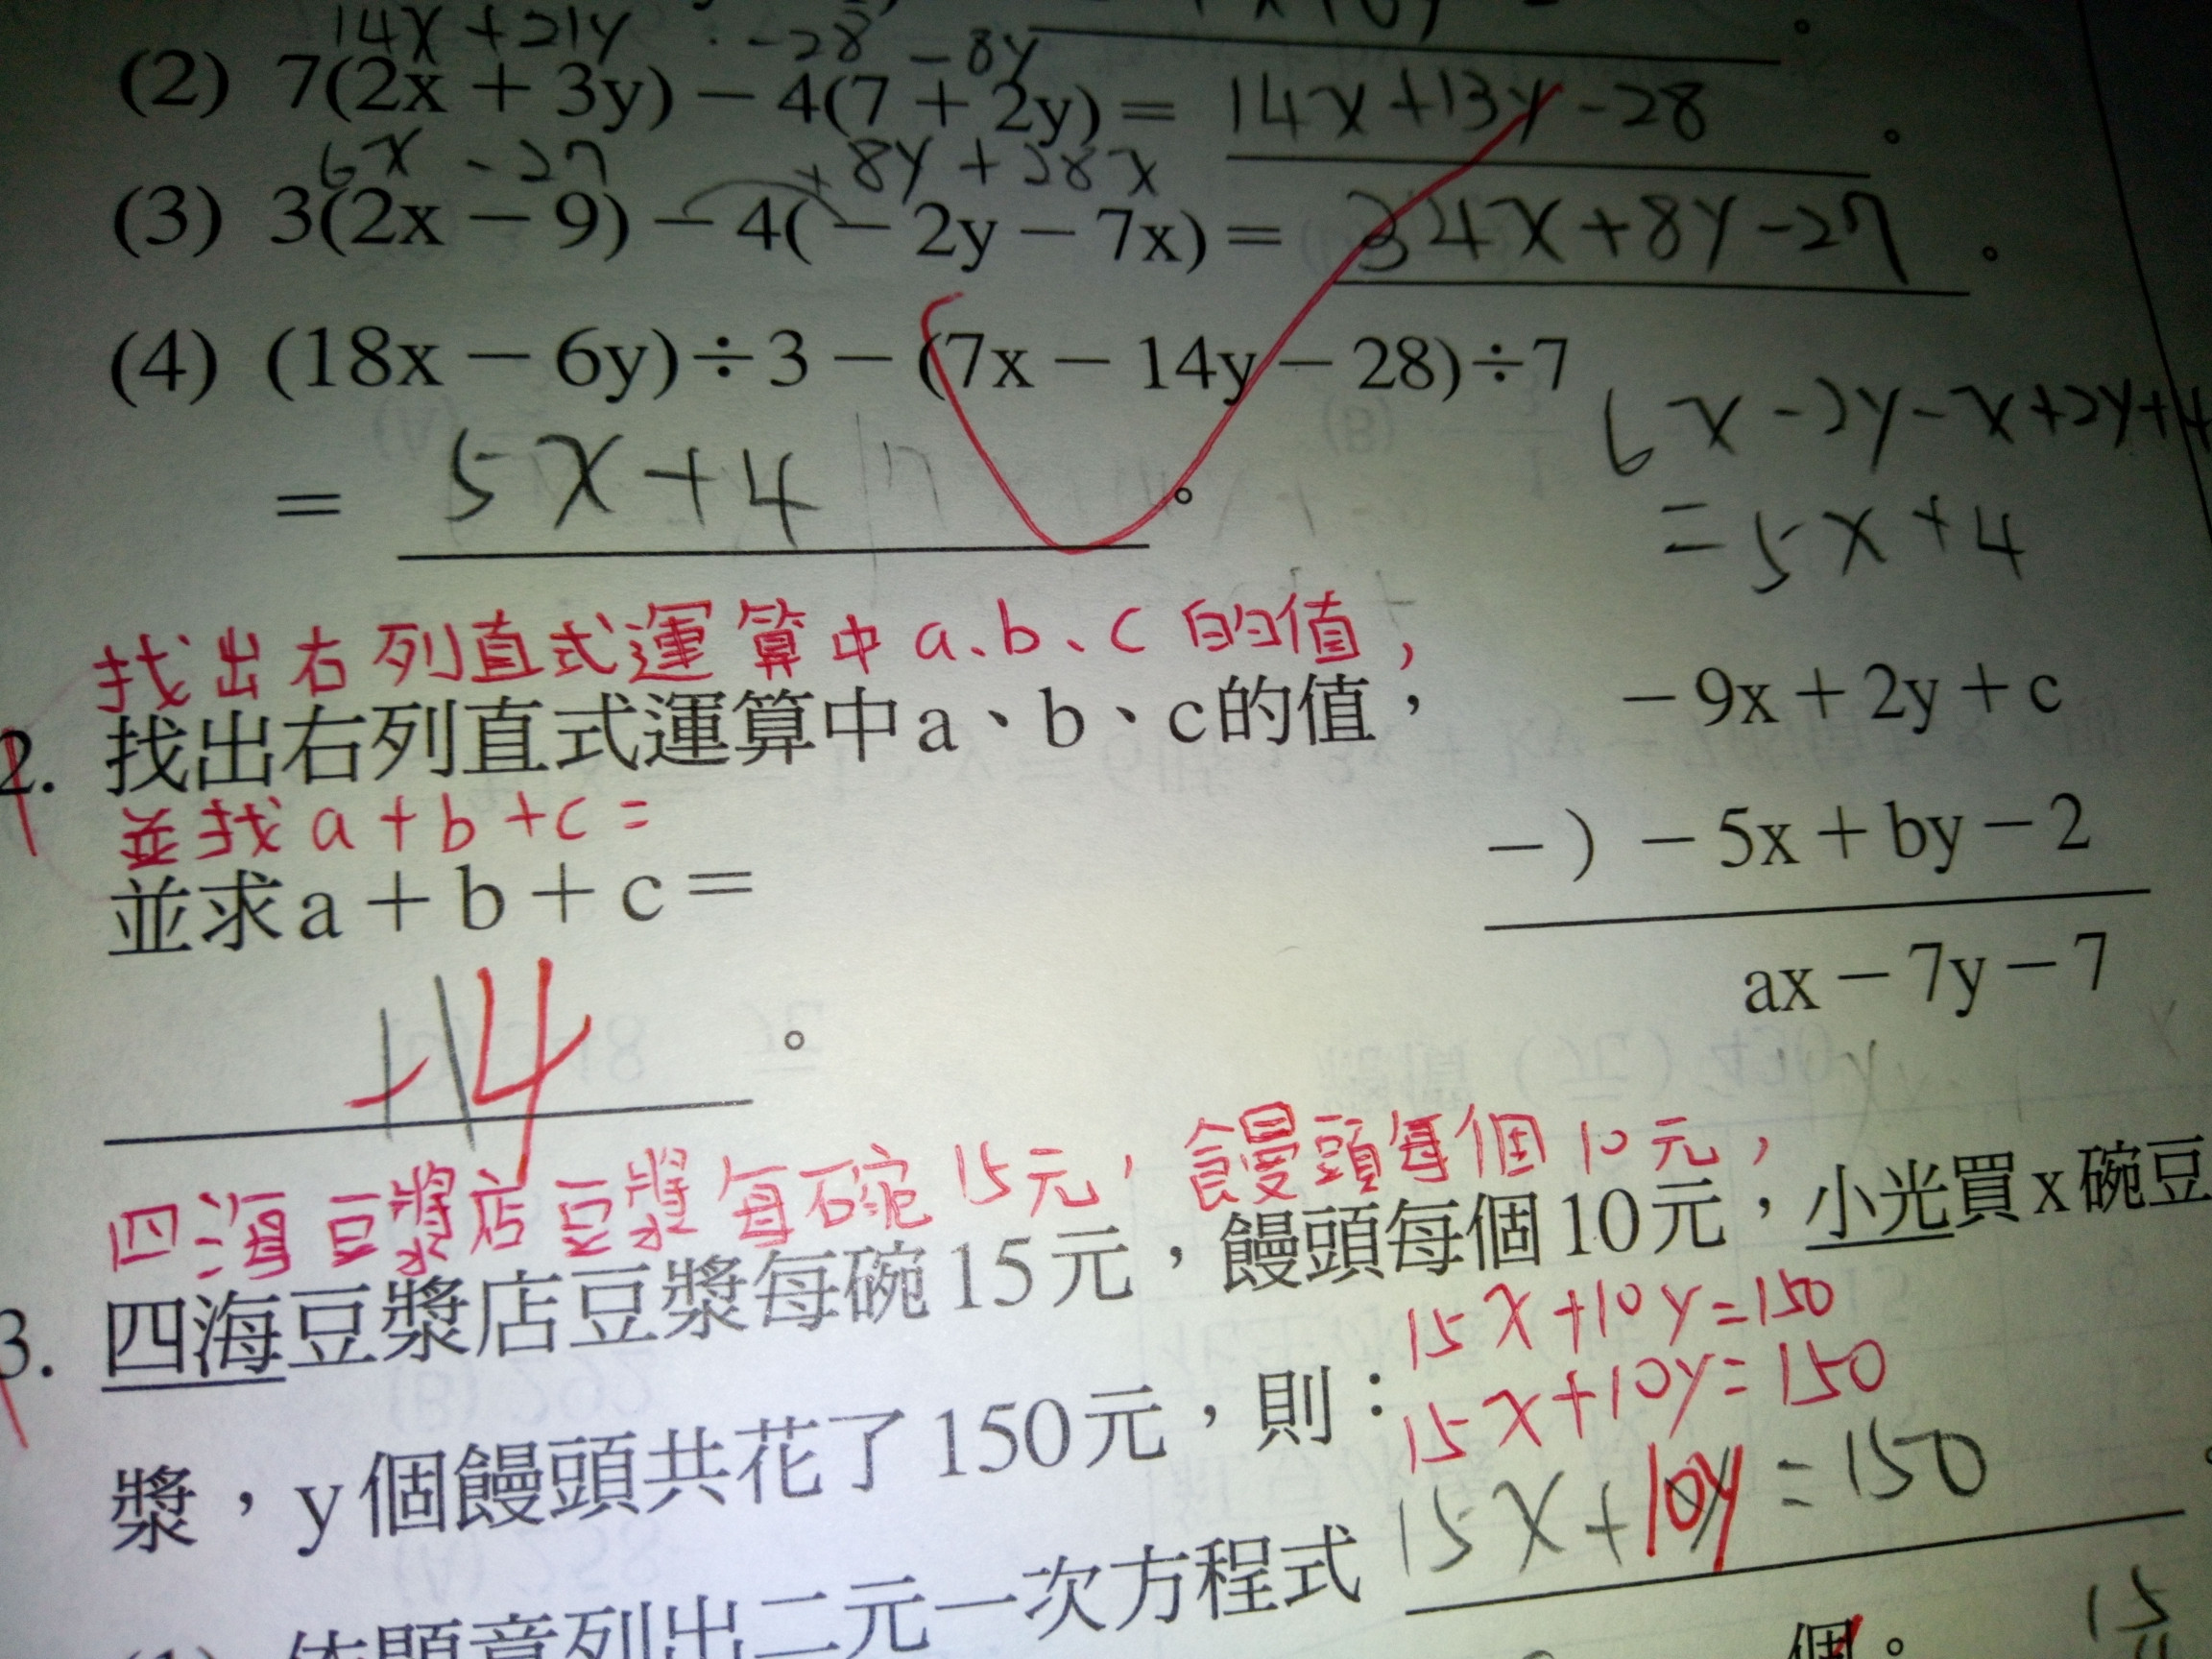 14x+21y -28 -8y
(2) 7(2x+3y)-4(7+2y)= 14x+13y-28。
6x -27 +8y+28x
(3) 3(2x-9)-4(-2y-7x)= 34x+8y-27。
(4) (18x-6y)÷3-(7x-14y-28)÷7
6x-2y-x+2y+4
= 5x+4。
=5x+4
找出右列直式運算中a、b、c的值,
2. 找出右列直式運算中a、b、c的值,
-9x+2y+c
並找a+b+c=
-)-5x+by-2
並求a+b+c=
ax-7y-7
。
四海豆漿店豆漿每碗15元,饅頭每個10元,
3. 四海豆漿店豆漿每碗15元,饅頭每個10元,小光買x碗豆
15x+10y=150
漿,y個饅頭共花了150元,則:
15x+10y=150
(1) 依題意列出二元一次方程式 15x+10y=150
個。
15